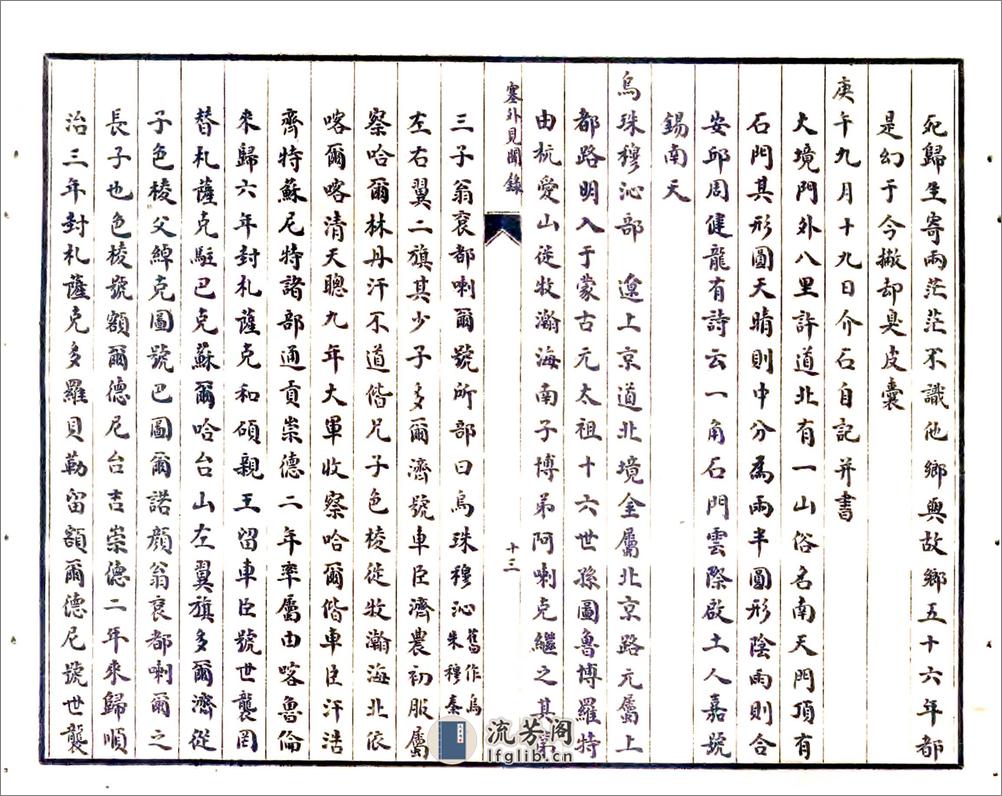 死歸生寄兩茫茫不識他鄉與故鄉五十六年都
是幻于今撇却臭皮囊
庚午九月十九日介石自記并書
大境門外八里許道北有一山俗名南天門頂有
石門其形圓天晴則中分為兩半圓形陰雨則合
安邱周健龍有詩云一角石門雲際啟土人嘉號
錫南天
烏珠穆沁部 遼上京道北境金屬北京路元屬上
都路明入于蒙古元太祖十六世孫圖魯博羅特
由杭愛山徙牧瀚海南子博弟阿喇克繼之其第
塞外見聞錄
十三
三子翁袞都喇爾號所部曰烏珠穆沁舊作烏朱穆秦
左右翼二旗其少子多爾濟號車臣濟農初服屬
察哈爾林丹汗不道偕兄子色棱徙牧瀚海北依
喀爾喀清天聰九年大軍收察哈爾偕車臣汗浩
齊特蘇尼特諸部通貢崇德二年率屬由喀魯倫
來歸六年封札薩克和碩親王留車臣號世襲罔
替札薩克駐巴克蘇爾哈台山左翼旗多爾濟從
子色棱父綽克圖號巴圖爾諾顏翁袞都喇爾之
長子也色棱號額爾德尼台吉崇德二年來歸順
治三年封札薩克多羅貝勒留額爾德尼號世襲
流芳閣
lfglib.cn